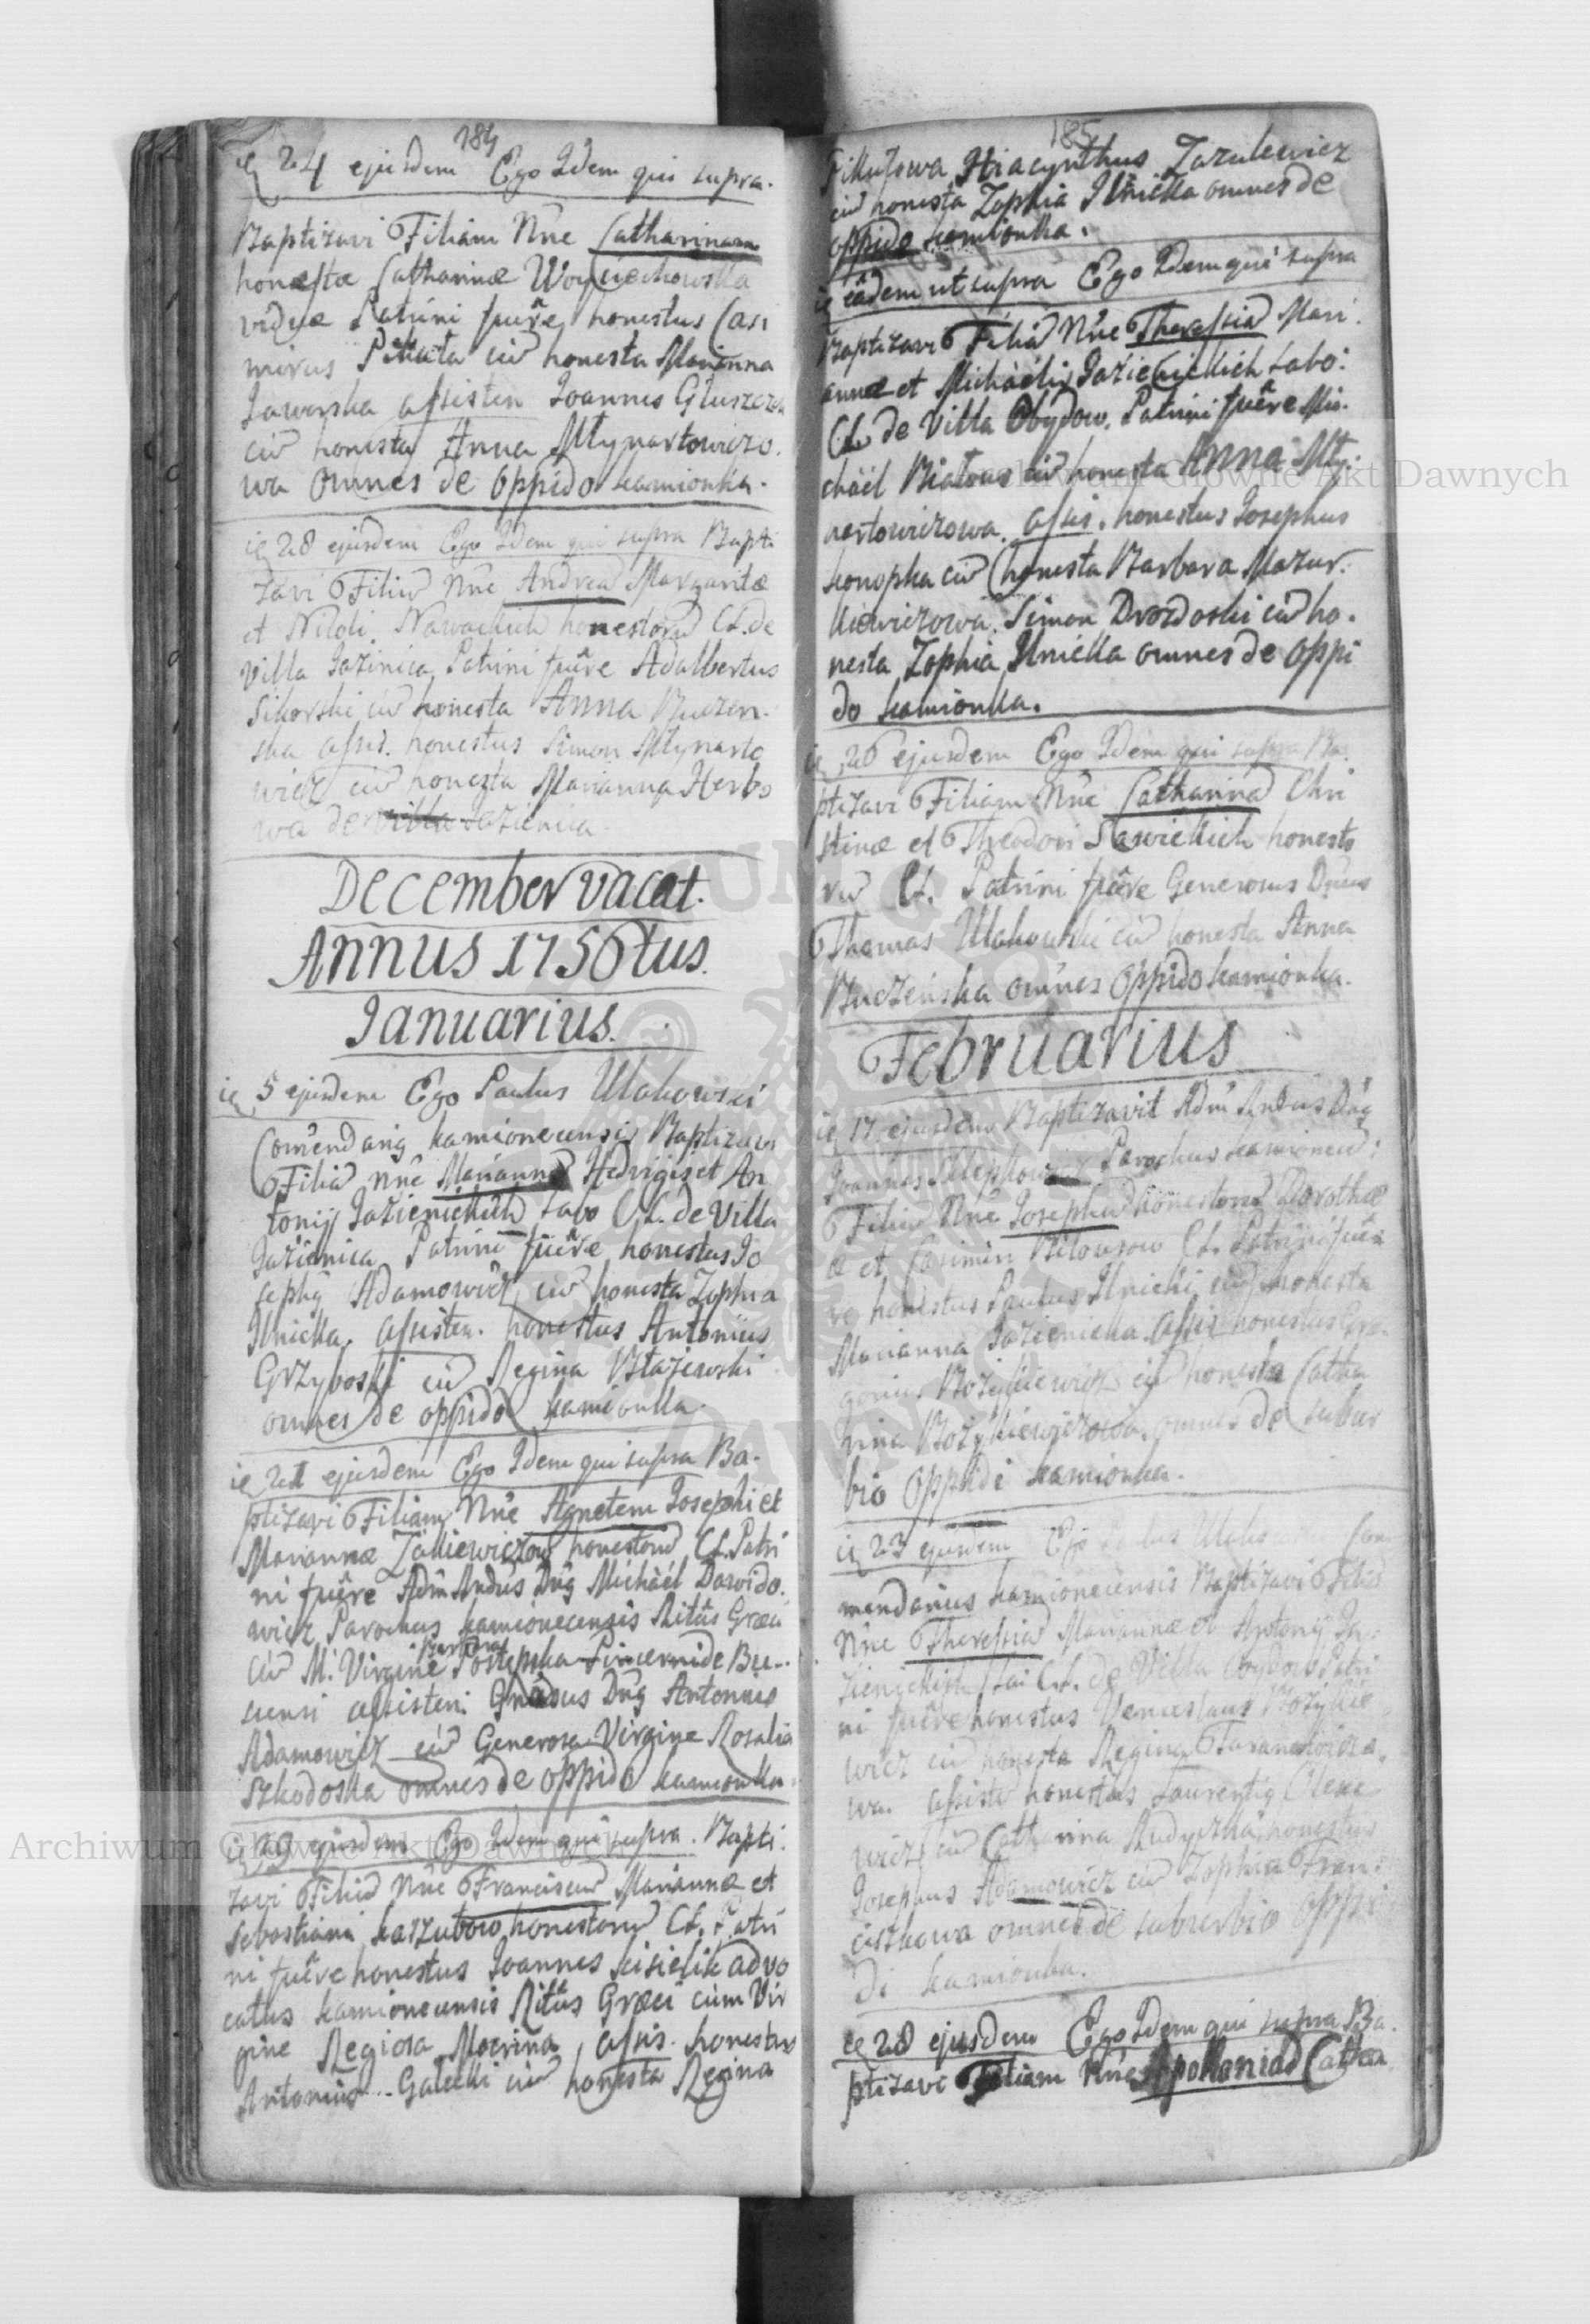 184
ie 24 ejusdem Ego Idem qui supra.
Baptizavi Filiam Nne Catharinam
honestæ Catharinæ Woyciechowska
viduæ Patrini fuêre honestus Casi
mirus Pikuta cū honesta Marianna
Jaworska assisten Joannes Głuszczak
cū honesta Anna Młynartowiczo.
wa omnes de oppido Kamionka.
ie 28 ejusdem Ego Idem qui supra Bapti
zavi Filiū Nne Andreā Margaritæ
et Nawackich honestorū CL. de
Villa Jazinica Patrini fuêre Adalbertus
Sikorski cū honesta Anna Buczen.
ska assis. honestus Simon Młynarto
wicz cū honesta Marianna Herbo
wa de villa Jazienica.
December vacat.
Annus 1756tus.
Januarius.
ie 5 ejusdem Ego Paulus Ulakowski
Com̄endarig Kamionecensis Baptizavi
Filiā Nne Mariannā Hedvigis et An
tonij Jazienickich Labo CL. de Villa
Jazienica Patrini fuêre honestus Jo
sephg Adamowicz cū honesta Zophia
Ilnicka. assisten. honestus Antonius
Grzyboski cū Regina Błażewski
omnes de oppido Kamionka.
ie 21 ejusdem Ego Idem qui supra Ba.
ptizavi Filiam Nne Agnetem Josephi et
Mariannæ Zakiewiczow honestorū CL. Patri
ni fuêre Adm Andus Dng Michàél Dawido.
wicz Parochus Kamionecensis Ritûs Græci
cū M. Virgine Barbara Postępska Pincernide Bu..
scensi assisten. Gnrosus Dng Antonius
Adamowicz cū Generosa Virgine Rosalia
Szkodoska omnes de oppido Kamionka.
ie 29 ejusdem Ego Idem qui supra. Bapti.
zavi Filiū Nne Franciscū Mariannæ et
Sebastiani Kaszubow honestorū CL. Patri
ni fuêre honestus Joannes Kisielik advo
catus Kamionecensis Ritûs Græci cùm Vir
gine Regiosa Macrina, assis. honestus
Antonius Galecki cū honesta Regina
185
Pikusowa Hiacynthus Zazulewicz
cū honesta Zophia Ilnicka omnes de
oppido Kamionka.
ie eâdem ut supra Ego Idem qui supra
Baptizavi Filiā Nne Theressiā Mari.
annæ et Michàélis Jazienickich Labo:
CL. de Villa Obydow. Patrini fuêre Mi.
chàél Białous cū honesta Anna Mły.
nartowiczowa. assis. honestus Josephus
Konopka cū honesta Barbara Mazur.
kiewiczowa. Simon Drozdoski cū ho.
nesta Zophia Ilnicka omnes de oppi
do Kamionka.
ie 26 ejusdem Ego Idem qui supra Ba
ptizavi Filiam Nne Catharinā Chri
stinæ et Theodori Sawickich honesto
rū CL. Patrini fuêre Generosus Dnus
Thomas Ulakowski cū honesta Anna
Buczeńska omnes oppido Kamionka.
Februarius
ie 17 ejusdem Baptizavit Adm Andus Dng
Joannes Parochus Kamionecē:
Filiū Nne Josephū honestorū Dorothæ
æ et Casimiri Bilousow CL. Patrini fuê
re honestus Paulus Ilnicki cū honesta
Marianna Jazienicka assis honestus Gre.
gorius Bożykiewicz cū honesta Catha
rina Bożykiewiczowa. omnes de subur
bio oppidi Kamionka.
ie 23 ejusdem Ego Paulus Com
mendarius Kamionecensis Baptizavi Filiā
Nne Theressiā Mariannæ et Antonij Ja.
zienickich CL. de Villa Obydow Patri
ni fuêre honestus Venceslaus Bożykie
wicz cū honesta Regina Taranowiczo.
wa. assiste honestus Laurentig Olexe
wicz cū Catharina Rudyczka, honestus
Josephus Adamowicz cū Zophia Fran.
ciszkowa omnes de suburbio oppi
di Kamionka.
ie 28 ejusdem Ego Idem qui supra Ba.
ptizavi Filiam Nne Apolloniā Catha
Archiwum Główne Akt Dawnych
Archiwum Główne Akt Dawnych